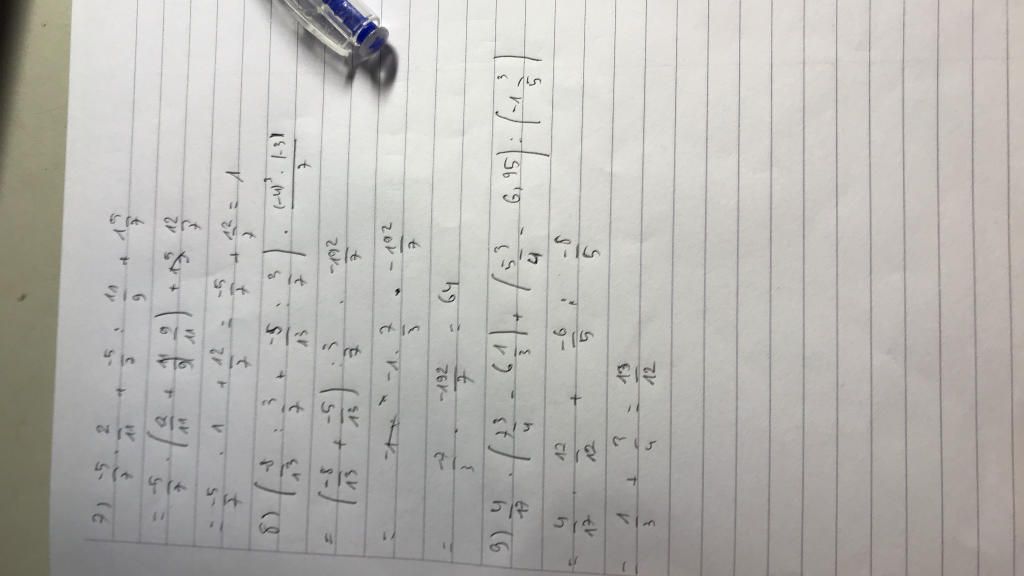 7) -5/7 . 2/11 + -5/7 : 11/9 + 1 5/7
= -5/7 . (2/11 + 9/11) + 12/7
= -5/7 . 1 + 12/7 = -5/7 + 12/7 = 1
8) (-8/13 : 3/7 + -5/13 : 3/7) . (-4)³ . (-3)/7
= (-8/13 + -5/13) : 3/7 . -192/7
= -1 . 7/3 . -192/7
= -7/3 . -192/7 = 64
9) 4/17 . (7 3/4 - 6 1/3) + (5 3/4 - 6,95) : (-1 3/5)
= 4/17 . 17/12 + -6/5 : -8/5
= 1/3 + 3/4 = 13/12